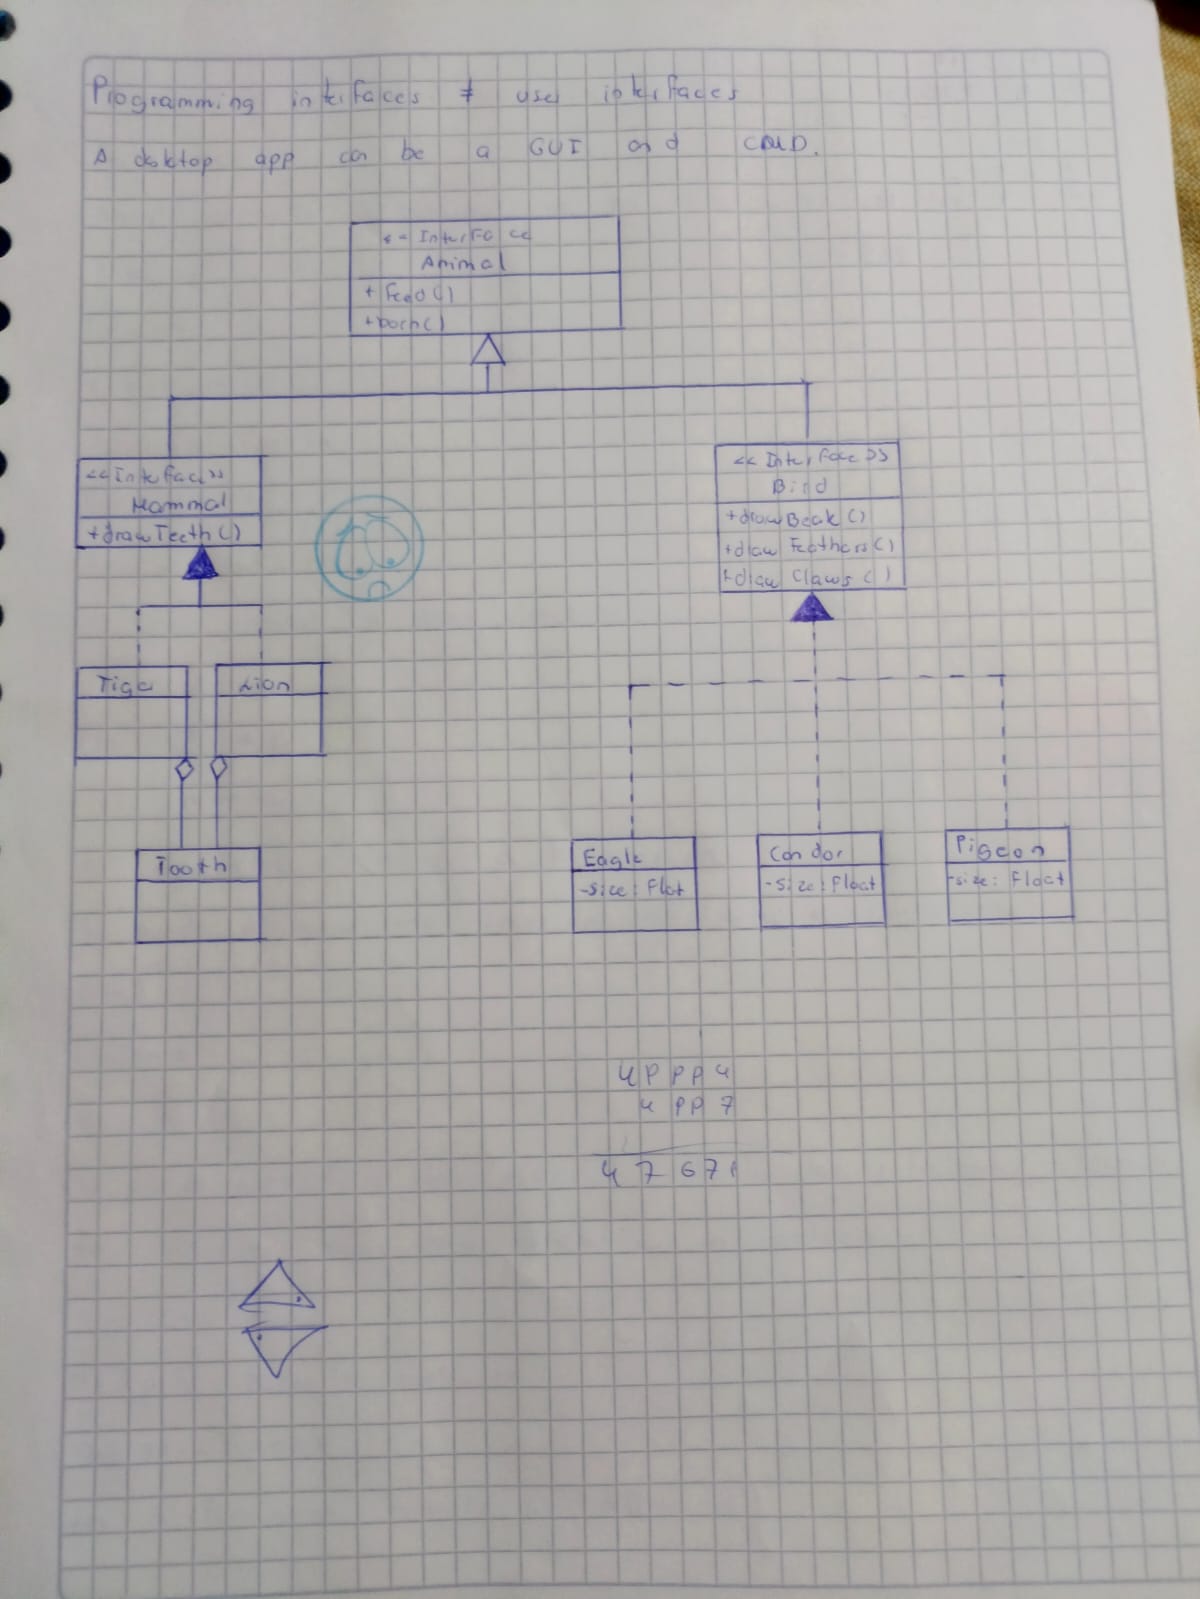 Programming interfaces ≠ user interfaces
A desktop app can be a GUI and CMD.
Interface
Animal
+ Feed()
<<Interface>>
Mammal
+drawTeeth()
<<Interface>>
Bird
+drawBeak()
+draw Feathers()
+draw Claws()
Lion
Tooth
Eagle
-size: Flot
Condor
-size: Float
Pigeon
-size: Float
4 P P P 4
4 P P 7
4 7 6 7 1